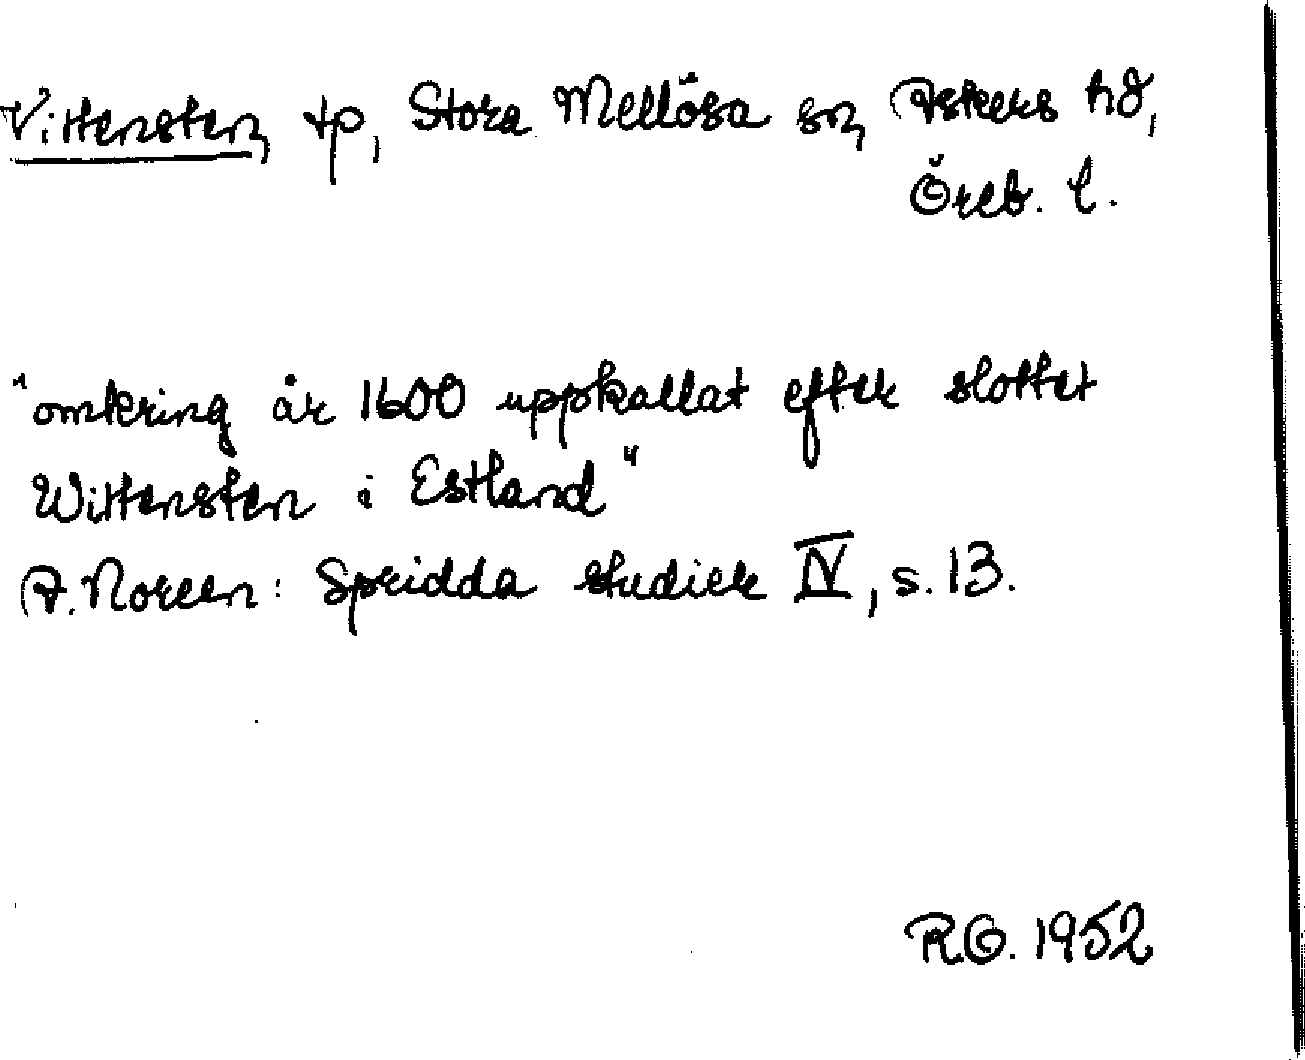 Vittensten, tp, Stora Mellösa sn, Askers hd,
Öreb. l.
"omkring år 1600 uppkallat efter slottet
Wittensten i Estland"
A. Noreen: Spridda studier IV, s. 13.
R.G. 1952